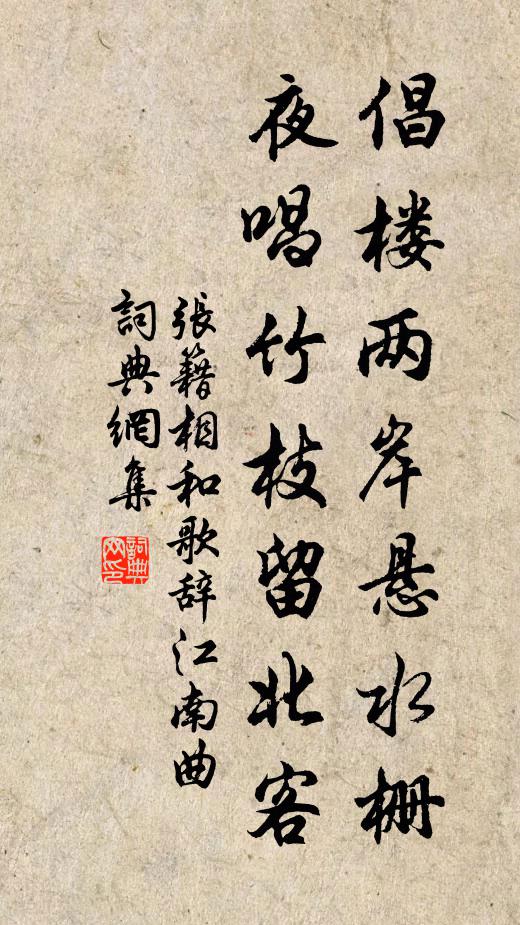 倡楼两岸悬水栅
夜唱竹枝留北客
張籍相和歌辞江南曲
詞典網集
詞典网印